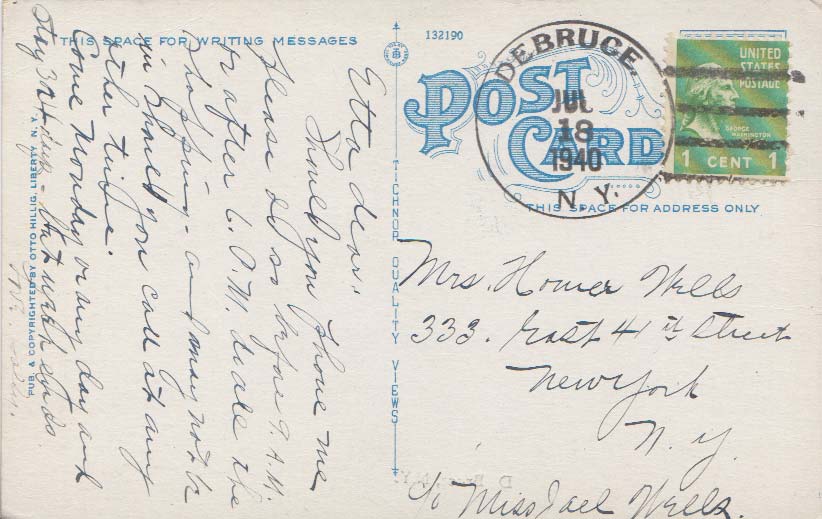 THIS SPACE FOR WRITING MESSAGES
Etta dear:
Should you phone me
please do so before 9. A.M.
or after 6. P.M. I do all the
shopping - and may not be
in should you call at any
other time.
Come Monday or any day and
Stay 3 - but week ends
PUB. & COPYRIGHTED BY OTTO HILLIG, LIBERTY, N. Y.
132190
TICHNOR QUALITY VIEWS
POST
CARD
DEBRUCE
JUL
18
1940
N. Y.
UNITED
STATES
POSTAGE
GEORGE
WASHINGTON
1 CENT 1
THIS SPACE FOR ADDRESS ONLY
Mrs. Homer Wells
333. East 41st Street
New York
N. Y.
c/o Miss Jael Wells.